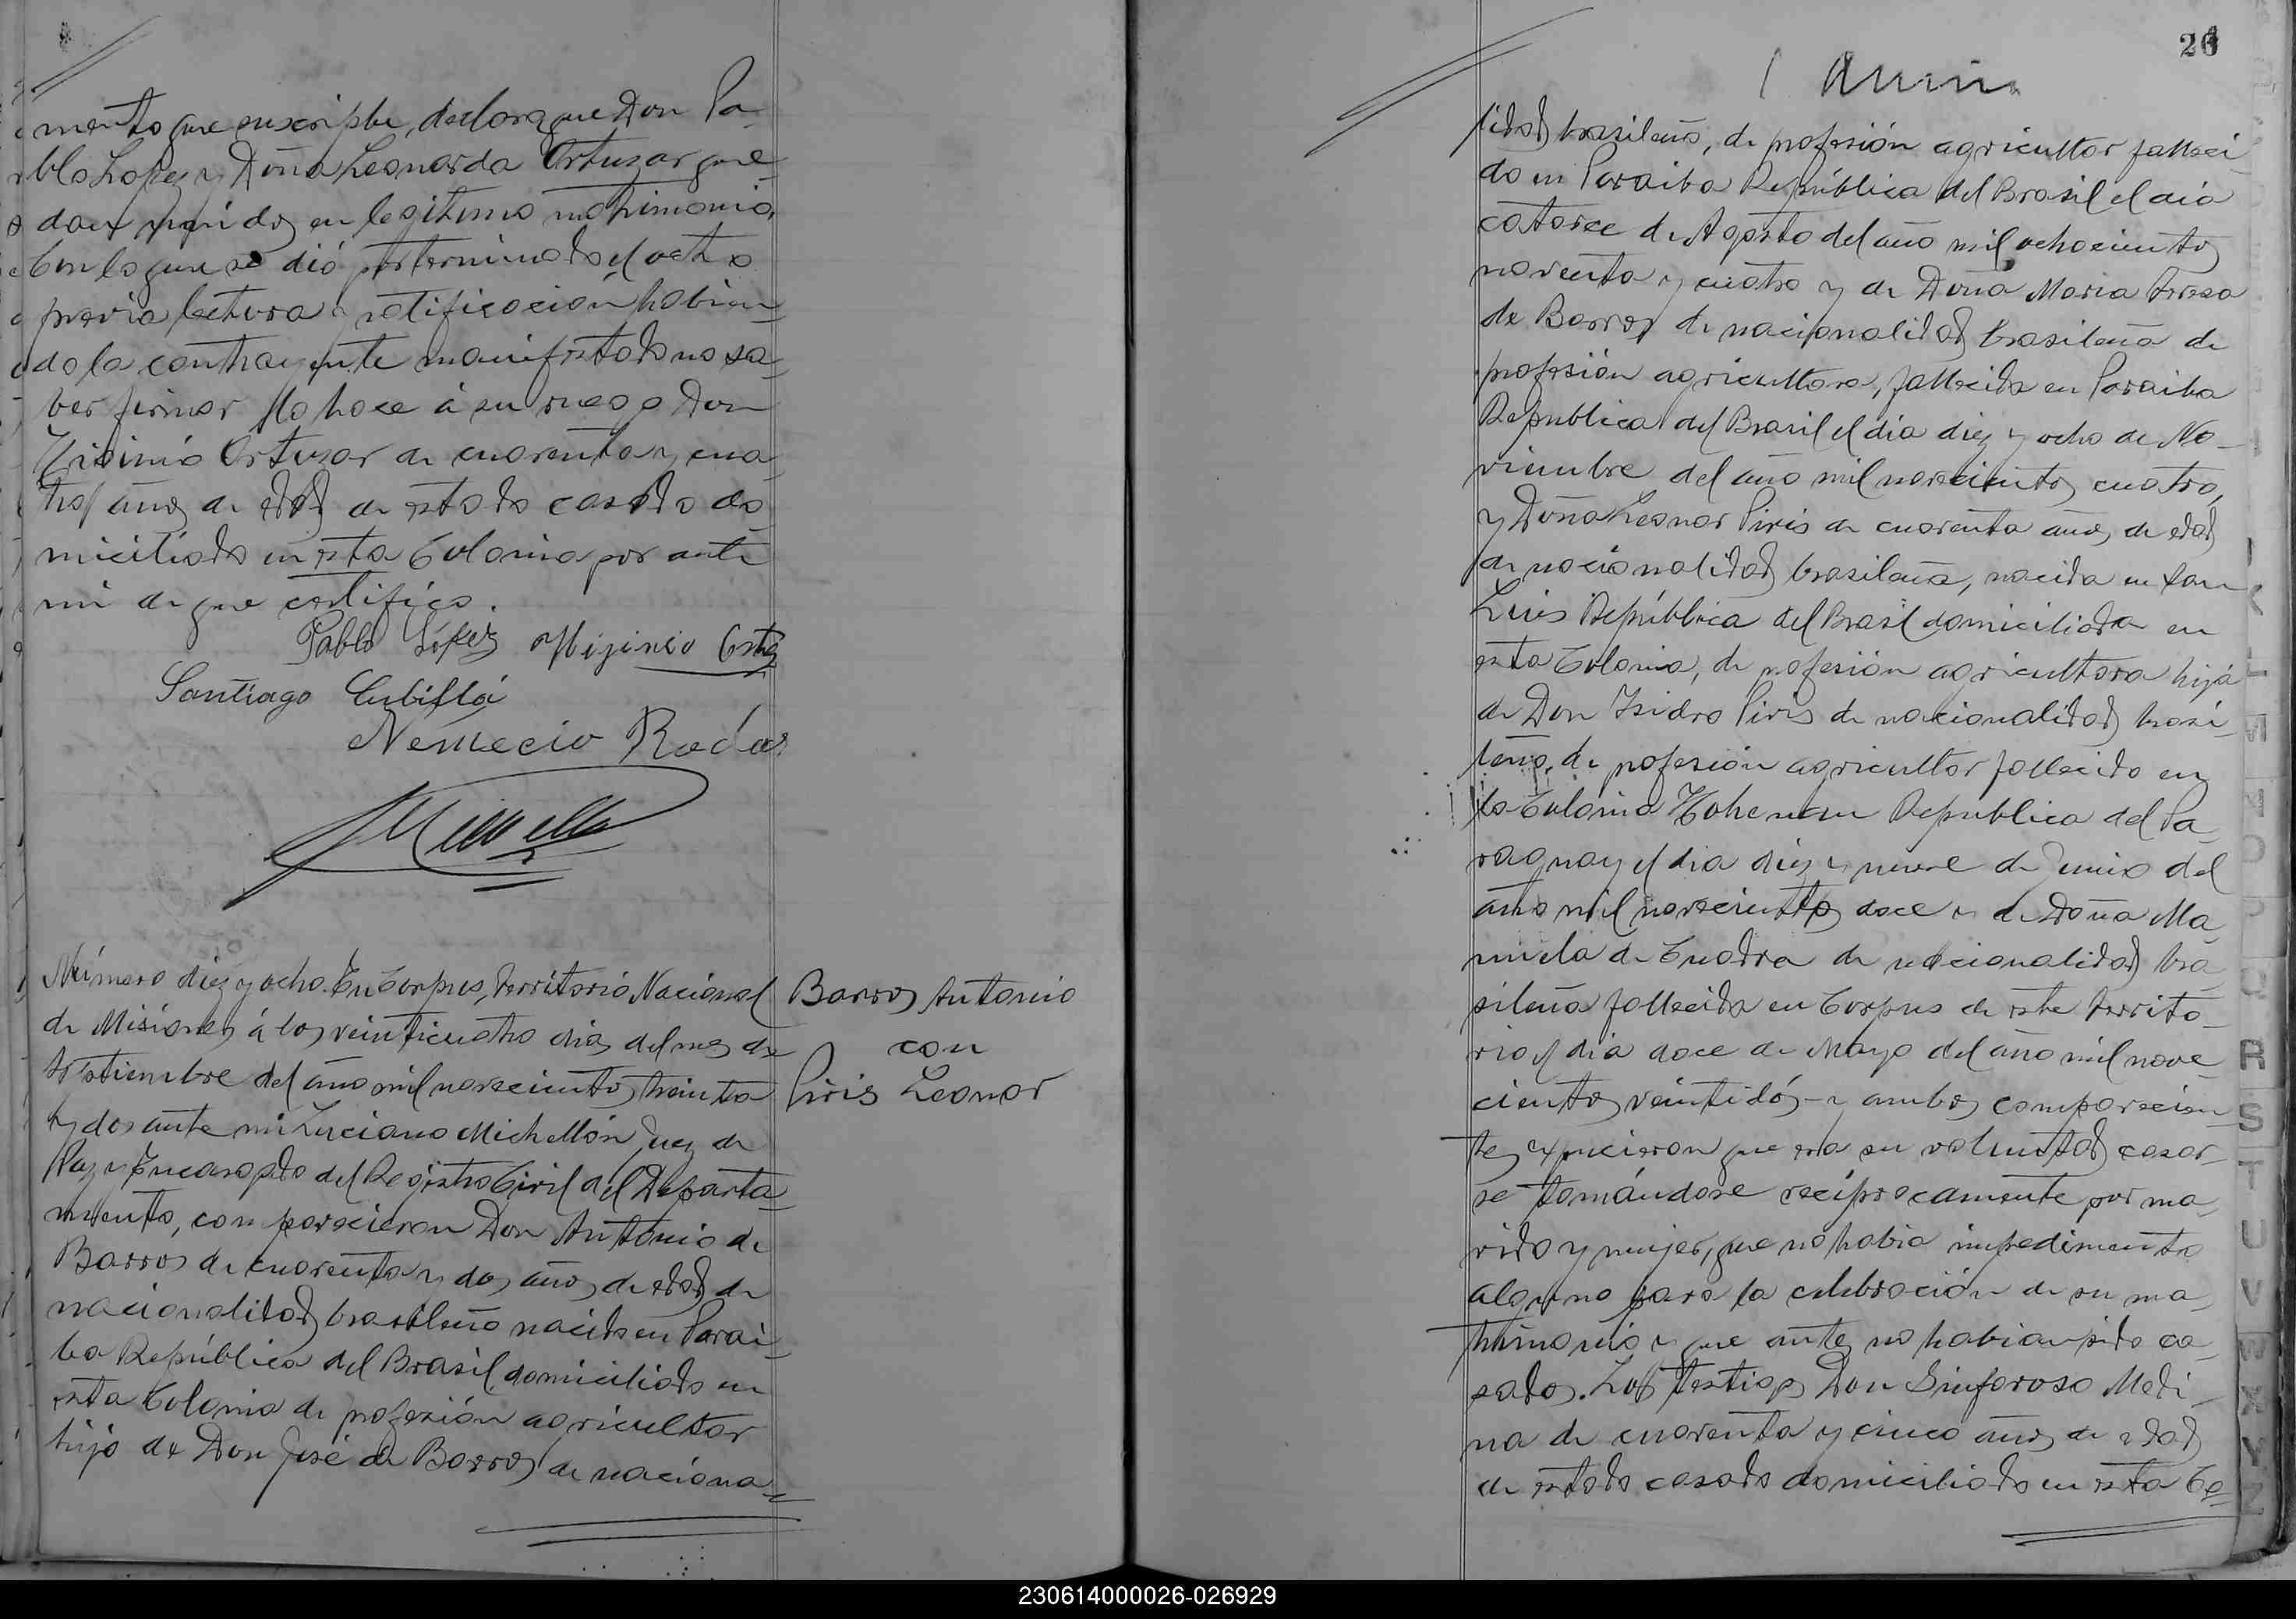 mento que suscripbe, declara que Don Pa-
blo Lopez y Doña Leonarda Ortuzar que-
dan unidos en legitimo matrimonio.
Con lo que se dió por terminado el acto
previa lectura y ratificación habien-
do la contrayente manifestado no sa-
ber firmar lo hace á su ruego Don
Higinió Ortuzar de cuarenta y cua-
tro años de edad de estado casado do-
miciliado en esta Colonia por ante
mi de que certifico.
Pablo López Higinio Ortuz
Santiago Cubilla
Nemecio Rodas
Número diez y ocho. En Corpus, Territorio Nacional
de Misiones á los veinticuatro dias del mes de
Setiembre del año mil novecientos treinta
y dos ante mi Luciano Michellón Juez de
Paz y Encargado del Registro Civil del Departa-
mento, comparecieron Don Antonio de
Barros de cuarenta y dos años de edad de
nacionalidad brasileño nacido en Parai-
ba República del Brasil, domiciliado en
esta Colonia de profesión agricultor
hijo de Don José de Barros de naciona-
Barros Antonio
con
Piris Leonor
26
lidad brasileño, de profesión agricultor falleci-
do en Paraiba República del Brasil el dia
catorce de Agosto del año mil ochocientos
noventa y cuatro y de Doña Maria Teresa
de Barros de nacionalidad brasileña de
profesión agricultora, fallecida en Paraiba
Republica del Brasil el día diez y ocho de No-
viembre del año mil novecientos cuatro,
y Doña Leonor Piris de cuarenta años de edad
de nacionalidad brasileña, nacida en San
Luis República del Brasil domiciliada en
esta Colonia, de profesión agricultora hija
de Don Isidro Piris de nacionalidad brasi-
leño, de profesión agricultor fallecido en
la Colonia Hohenau Republica del Pa-
raguay el dia diez y nueve de Junio del
año mil novecientos doce y de Doña Ma-
nuela de Cuadra de nacionalidad bra-
sileña fallecida en Corpus de este territo-
rio el dia doce de Mayo del año mil nove-
cientos veintidós y ambos comparecien-
tes expucieron que era su voluntad casar-
se tomándose recíprocamente por ma-
rido y mujer, que no habia impedimento
alguno para la celebración de su ma-
trimonio y que antes no habian sido ca-
sados. Los testigos Don Sinforoso Medi-
na de cuarenta y cinco años de edad
de estado casado domiciliado en esta Co-
R
S
T
U
V
W
X
Y
Z
230614000026-026929